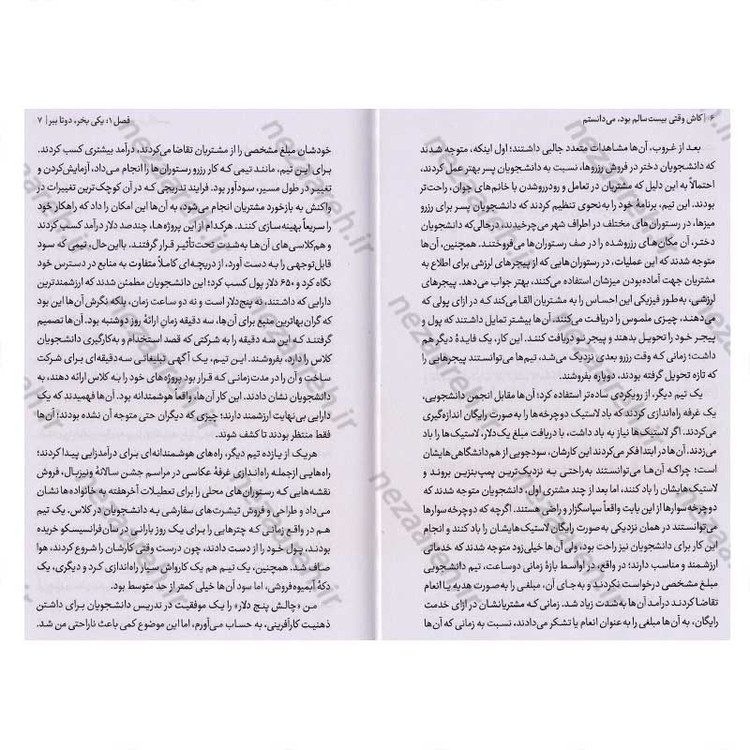 ۶ | کاش وقتی بیست‌سالم بود، می‌دانستم
بعد از غروب، آن‌ها مشاهدات متعدد جالبی داشتند؛ اول اینکه، متوجه شدند
که دانشجویان دختر در فروش رزروها، نسبت به دانشجویان پسر بهتر عمل کردند،
احتمالاً به این دلیل که مشتریان در تعامل و رودرروشدن با خانم‌های جوان، راحت‌تر
بودند. این تیم، برنامهٔ خود را به‌نحوی تنظیم کردند که دانشجویان پسر برای رزرو
میزها، در رستوران‌های مختلف در اطراف شهر می‌چرخیدند، درحالی‌که دانشجویان
دختر، آن مکان‌های رزروشده را در صف رستوران‌ها می‌فروختند. همچنین، آن‌ها
متوجه شدند که این عملیات، در رستوران‌هایی که از پیجرهای لرزشی برای اطلاع به
مشتریان جهت آماده‌بودن میزشان استفاده می‌کنند، بهتر جواب می‌دهد. پیجرهای
لرزشی، به‌طور فیزیکی این احساس را به مشتریان القا می‌کند که در ازای پولی که
می‌دهند، چیزی ملموس را دریافت می‌کنند. آن‌ها بیشتر تمایل داشتند که پول و
پیجر خود را تحویل بدهند و پیجر نو دریافت کنند. این کار، یک فایدهٔ دیگر هم
داشت؛ زمانی که وقت رزرو بعدی نزدیک می‌شد، تیم‌ها می‌توانستند پیجرهایی را
که تازه تحویل گرفته بودند، دوباره بفروشند.
یک تیم دیگر، از رویکردی ساده‌تر استفاده کرد؛ آن‌ها مقابل انجمن دانشجویی،
یک غرفه راه‌اندازی کردند که باد لاستیک دوچرخه‌ها را به‌صورت رایگان اندازه‌گیری
می‌کردند. اگر لاستیک‌ها نیاز به باد داشت، با دریافت مبلغ یک‌دلار، لاستیک‌ها را باد
می‌زدند. آن‌ها در ابتدا فکر می‌کردند این کارشان، سودجویی از هم‌دانشگاهی‌هایشان
است؛ چراکه آن‌ها می‌توانستند به‌راحتی به نزدیک‌ترین پمپ‌بنزین بروند و
لاستیک‌هایشان را باد کنند، اما بعد از چند مشتری اول، دانشجویان متوجه شدند که
دوچرخه‌سوارها از این بابت واقعاً سپاسگزار و راضی هستند. اگرچه که دوچرخه‌سوارها
می‌توانستند در همان نزدیکی به‌صورت رایگان لاستیک‌هایشان را باد کنند و انجام
این کار برای دانشجویان نیز راحت بود، ولی آن‌ها خیلی‌زود متوجه شدند که خدماتی
ارزشمند و مناسب دارند؛ در واقع، در اواسط بازهٔ زمانی دوساعت، تیم دانشجویی
مبلغ مشخصی درخواست نکردند و به‌جای آن، مبلغی را به‌صورت هدیه یا انعام
تقاضا کردند درآمد آن‌ها به‌شدت زیاد شد. زمانی که مشتریانشان در ازای خدمت
رایگان، به آن‌ها مبلغی را به عنوان انعام یا تشکر می‌دادند، نسبت به زمانی که آن‌ها
فصل ۱: یکی بخر، دوتا ببر | ۷
خودشان مبلغ مشخصی را از مشتریان تقاضا می‌کردند، درآمد بیشتری کسب کردند.
برای این تیم، مانند تیمی که کار رزرو رستوران‌ها را انجام می‌داد، آزمایش‌کردن و
تغییر در طول مسیر، سودآور بود. فرایند تدریجی که در آن کوچک‌ترین تغییرات در
واکنش به بازخورد مشتریان انجام می‌شود، به آن‌ها این امکان را داد که راهکار خود
را سریعاً بهینه‌سازی کنند. هرکدام از این پروژه‌ها، چندصد دلار درآمد کسب کردند
و هم‌کلاسی‌های آن‌ها به‌شدت تحت‌تأثیر قرار گرفتند. بااین‌حال، تیمی که سود
قابل‌توجهی را به دست آورد، از دریچه‌ای کاملاً متفاوت به منابع در دسترس خود
نگاه کرد و ۶۵۰ دلار پول کسب کرد؛ این دانشجویان مطمئن شدند که ارزشمندترین
دارایی که داشتند، نه پنج‌دلار است و نه دو ساعت زمان، بلکه نگرش آن‌ها این بود
که گران‌بهاترین منبع برای آن‌ها، سه دقیقه زمانِ ارائهٔ روز دوشنبه بود. آن‌ها تصمیم
گرفتند که این سه دقیقه را به شرکتی که قصد استخدام و به‌کارگیری دانشجویان
کلاس را دارد، بفروشند. این تیم، یک آگهی تبلیغاتی سه‌دقیقه‌ای برای شرکت
ساخت و آن را در مدت‌زمانی که قرار بود پروژه‌های خود را به کلاس ارائه دهند، به
دانشجویان نشان دادند. این کار آن‌ها، واقعاً هوشمندانه بود. آن‌ها فهمیدند که یک
دارایی بی‌نهایت ارزشمند دارند؛ چیزی که دیگران حتی متوجه آن نشده بودند؛ آن‌ها
فقط منتظر بودند تا کشف شوند.
هریک از یازده تیم دیگر، راه‌های هوشمندانه‌ای برای درآمدزایی پیدا کردند؛
راه‌هایی ازجمله راه‌اندازی غرفهٔ عکاسی در مراسم جشن سالانهٔ ونیزبال، فروش
نقشه‌هایی که رستوران‌های محلی را برای تعطیلات آخرهفته به خانواده‌ها نشان
می‌داد و طراحی و فروش تیشرت‌های سفارشی به دانشجویان در کلاس. یک تیم
هم در واقع زمانی که چترهایی را برای یک روز بارانی در سان‌فرانسیسکو خریده
بودند، پول خود را از دست دادند، چون درست وقتی کارشان را شروع کردند، هوا
صاف شد. همچنین، یک تیم هم یک کارواش سیار راه‌اندازی کرد و دیگری، یک
دکهٔ آبمیوه‌فروشی، اما سود آن‌ها خیلی کمتر از حد متوسط بود.
من «چالش پنج دلار» را یک موفقیت در تدریس دانشجویان برای داشتن
ذهنیت کارآفرینی، به حساب می‌آورم، اما این موضوع کمی باعث ناراحتی من شد.
nezaareh.ir